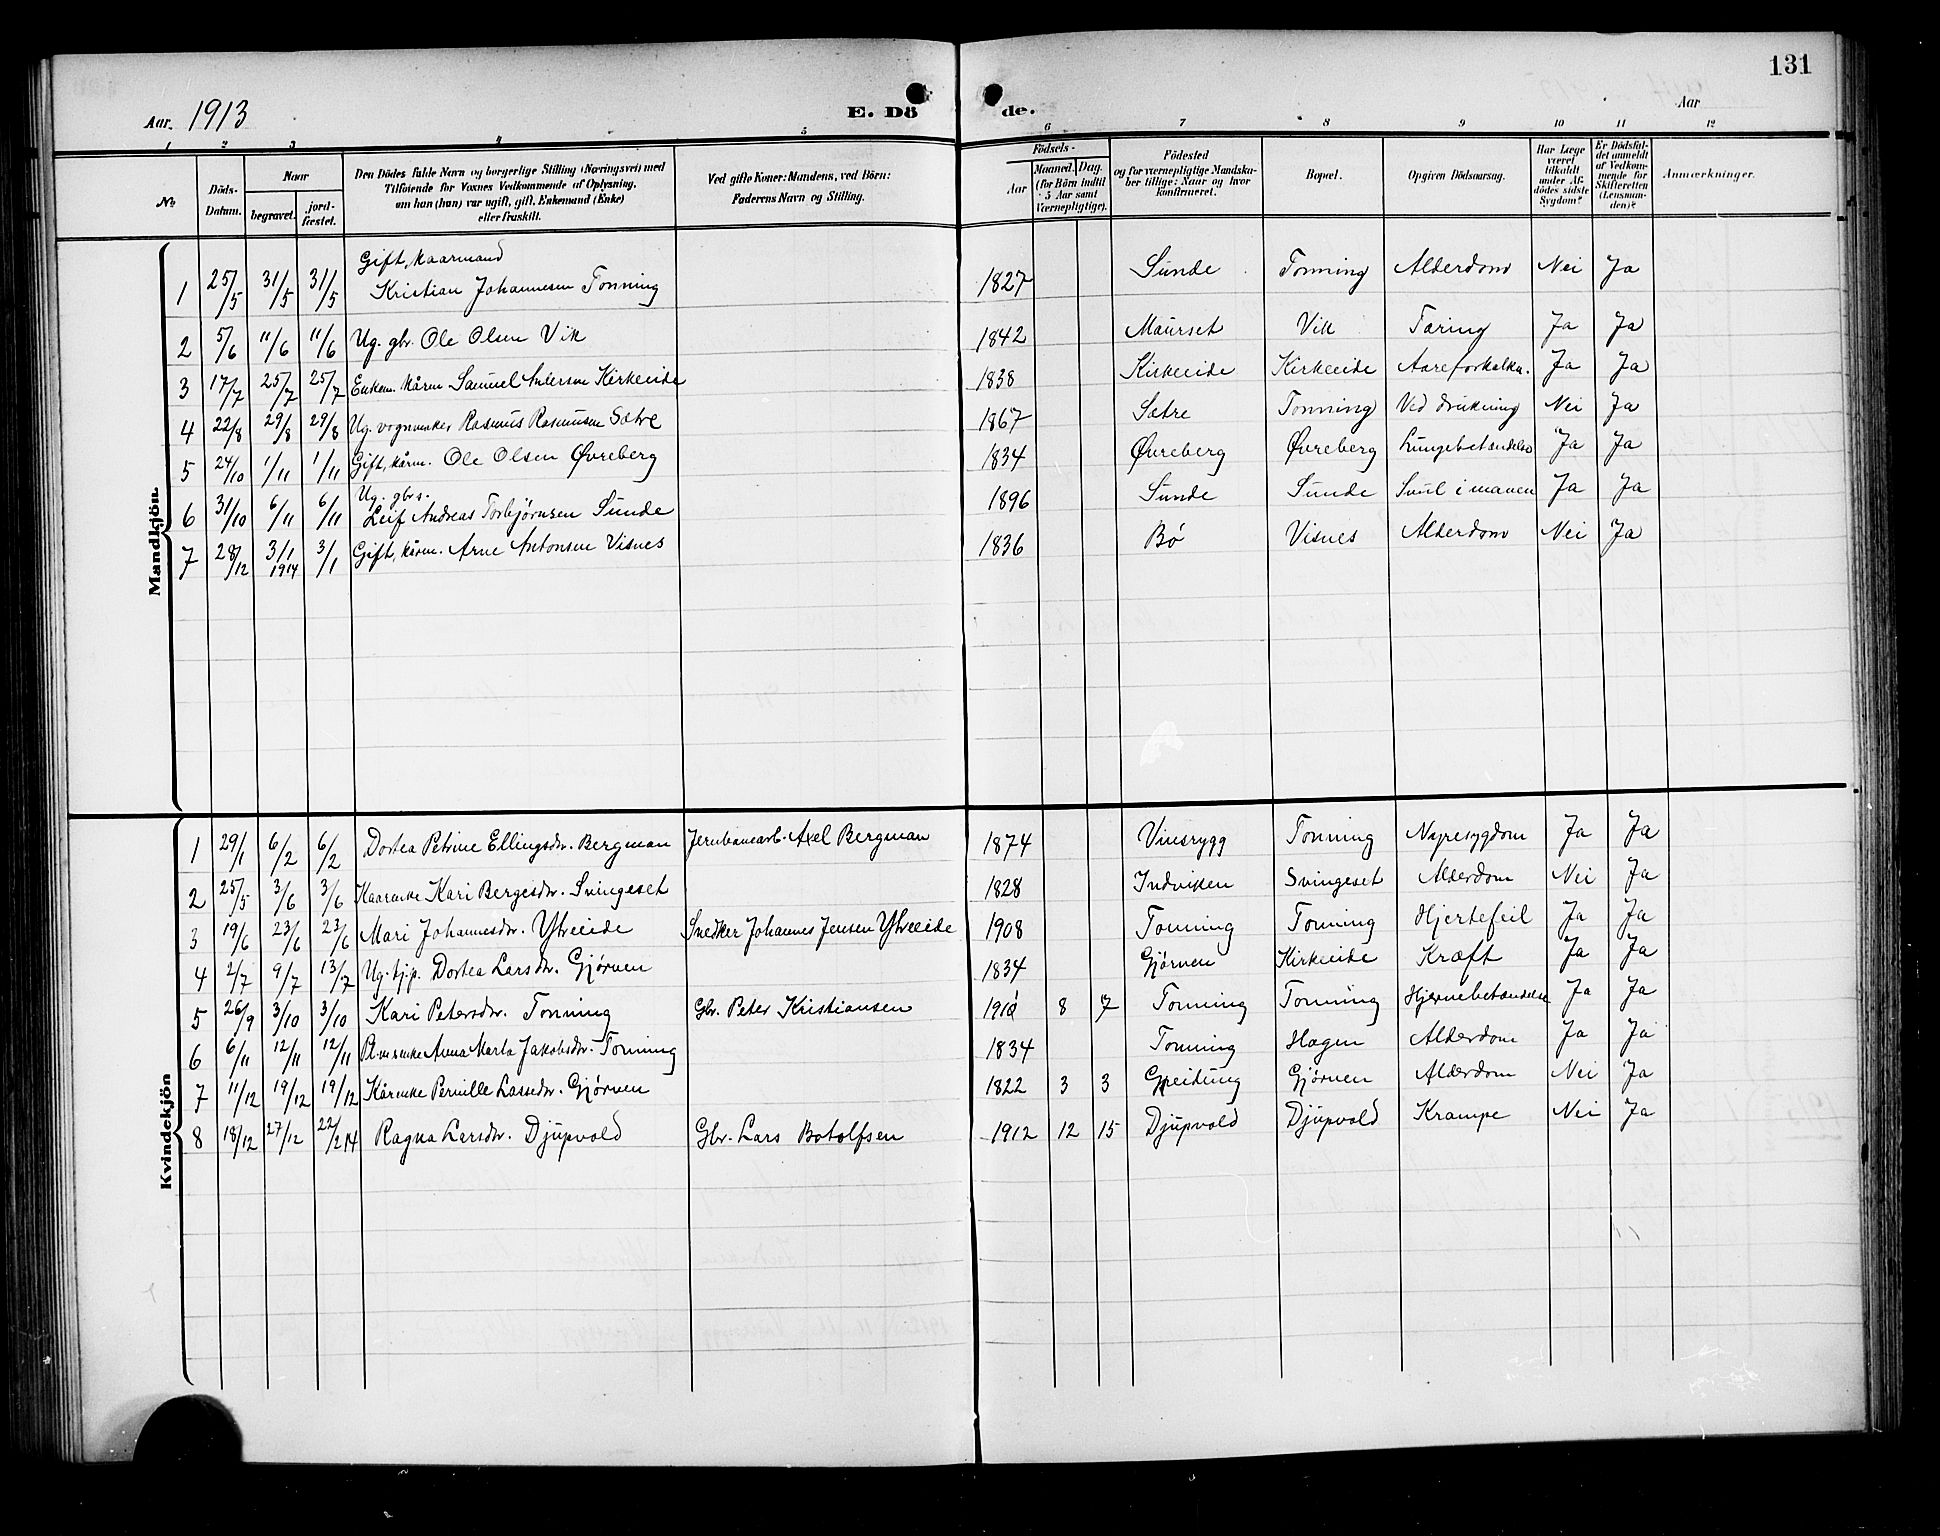 131
Aar. 1913
E. Dö de.
Aar
1 2 3 4 5 6 7 8 9 10 11 12
No
Döds-Datum.
Naar begravet. jordfæstet.
Den Dödes fulde Navn og borgerlige Stilling (Næringsvei) med Tilföiende for Voxnes Vedkommende af Oplysning, om han (hun) var ugift, gift, Enkemand (Enke) eller fraskilt.
Ved gifte Koner: Mandens, ved Börn: Faderens Navn og Stilling.
Födsels-
Aar Maaned. Dag. (for Börn indtil 5 Aar samt Værnepligtige).
Födested og for værnepligtige Mandskaber tillige: Naar og hvor konfirmeret.
Bopæl.
Opgiven Dödsaarsag.
Har Læge været tilkaldt under Afdödes sidste Sygdom?
Er Dödsfaldet anmeldt af Vedkommende for Skifteretten (Lensmanden)?
Anmærkninger.
Mandkjön.
1 25/5 31/5 31/5 Gift, kaarmand Kristian Johannesen Tonning 1827 Sunde Tonning Alderdom Nei Ja
2 5/6 11/6 11/6 Ug. gbr. Ole Olsen Vik 1842 Maurset Vik Tæring Ja Ja
3 17/7 25/7 25/7 Enkem. kårm Samuel Andersen Kirkeeide 1838 Kirkeeide Kirkeeide Aareforkalkn. Ja Ja
4 22/8 29/8 29/8 Ug. vognmaker Rasmus Rasmusen Sætre 1867 Sætre Tonning Ved drukning Nei Ja
5 24/10 1/11 1/11 Gift, kårm. Ole Olsen Øvreberg 1834 Øvreberg Øvreberg Lungebetændelse Ja Ja
6 31/10 6/11 6/11 Ug. gbrs. Leif Andreas Torbjørnsen Sunde 1896 Sunde Sunde Svul i maven Ja Ja
7 28/12 3/1 1914 3/1 Gift, kårm. Arne Antonsen Visnes 1836 Bø Visnes Alderdom Nei Ja
Kvindekjön
1 29/1 6/2 6/2 Dortea Petrine Ellingsdtr. Bergman Jernbanearb. Axel Bergman 1874 Vinsrygg Tonning Nyresygdom Ja Ja
2 25/5 3/6 3/6 Kaarenke Kari Bergesdtr. Svingeset 1828 Indviken Svingeset Alderdom Nei Ja
3 19/6 23/6 23/6 Mari Johannesdtr. Ytreeide Snedker Johannes Jensen Ytreeide 1908 Tonning Tonning Hjertefeil Ja Ja
4 2/7 9/7 13/7 Ug. tjp. Dortea Larsdtr. Gjørven 1834 Gjørven Kirkeeide Kræft Ja Ja
5 26/9 3/10 3/10 Kari Petersdtr. Tonning Gbr. Peter Kristiansen 1910 8 7 Tonning Tonning Hjernebetændelse Ja Ja
6 6/11 12/11 12/11 Anna Marta Jakobsdtr. Tonning 1834 Tonning Hagen Alderdom Ja Ja
7 11/12 19/12 19/12 Kårenke Pernille Lassedtr. Gjørven 1822 3 3 Gjørven Alderdom Nei Ja
8 18/12 27/12 22/2 14 Ragna Larsdtr. Djupvold Gbr. Lars Botolfsen 1912 12 15 Djupvold Djupvold Krampe Nei Ja